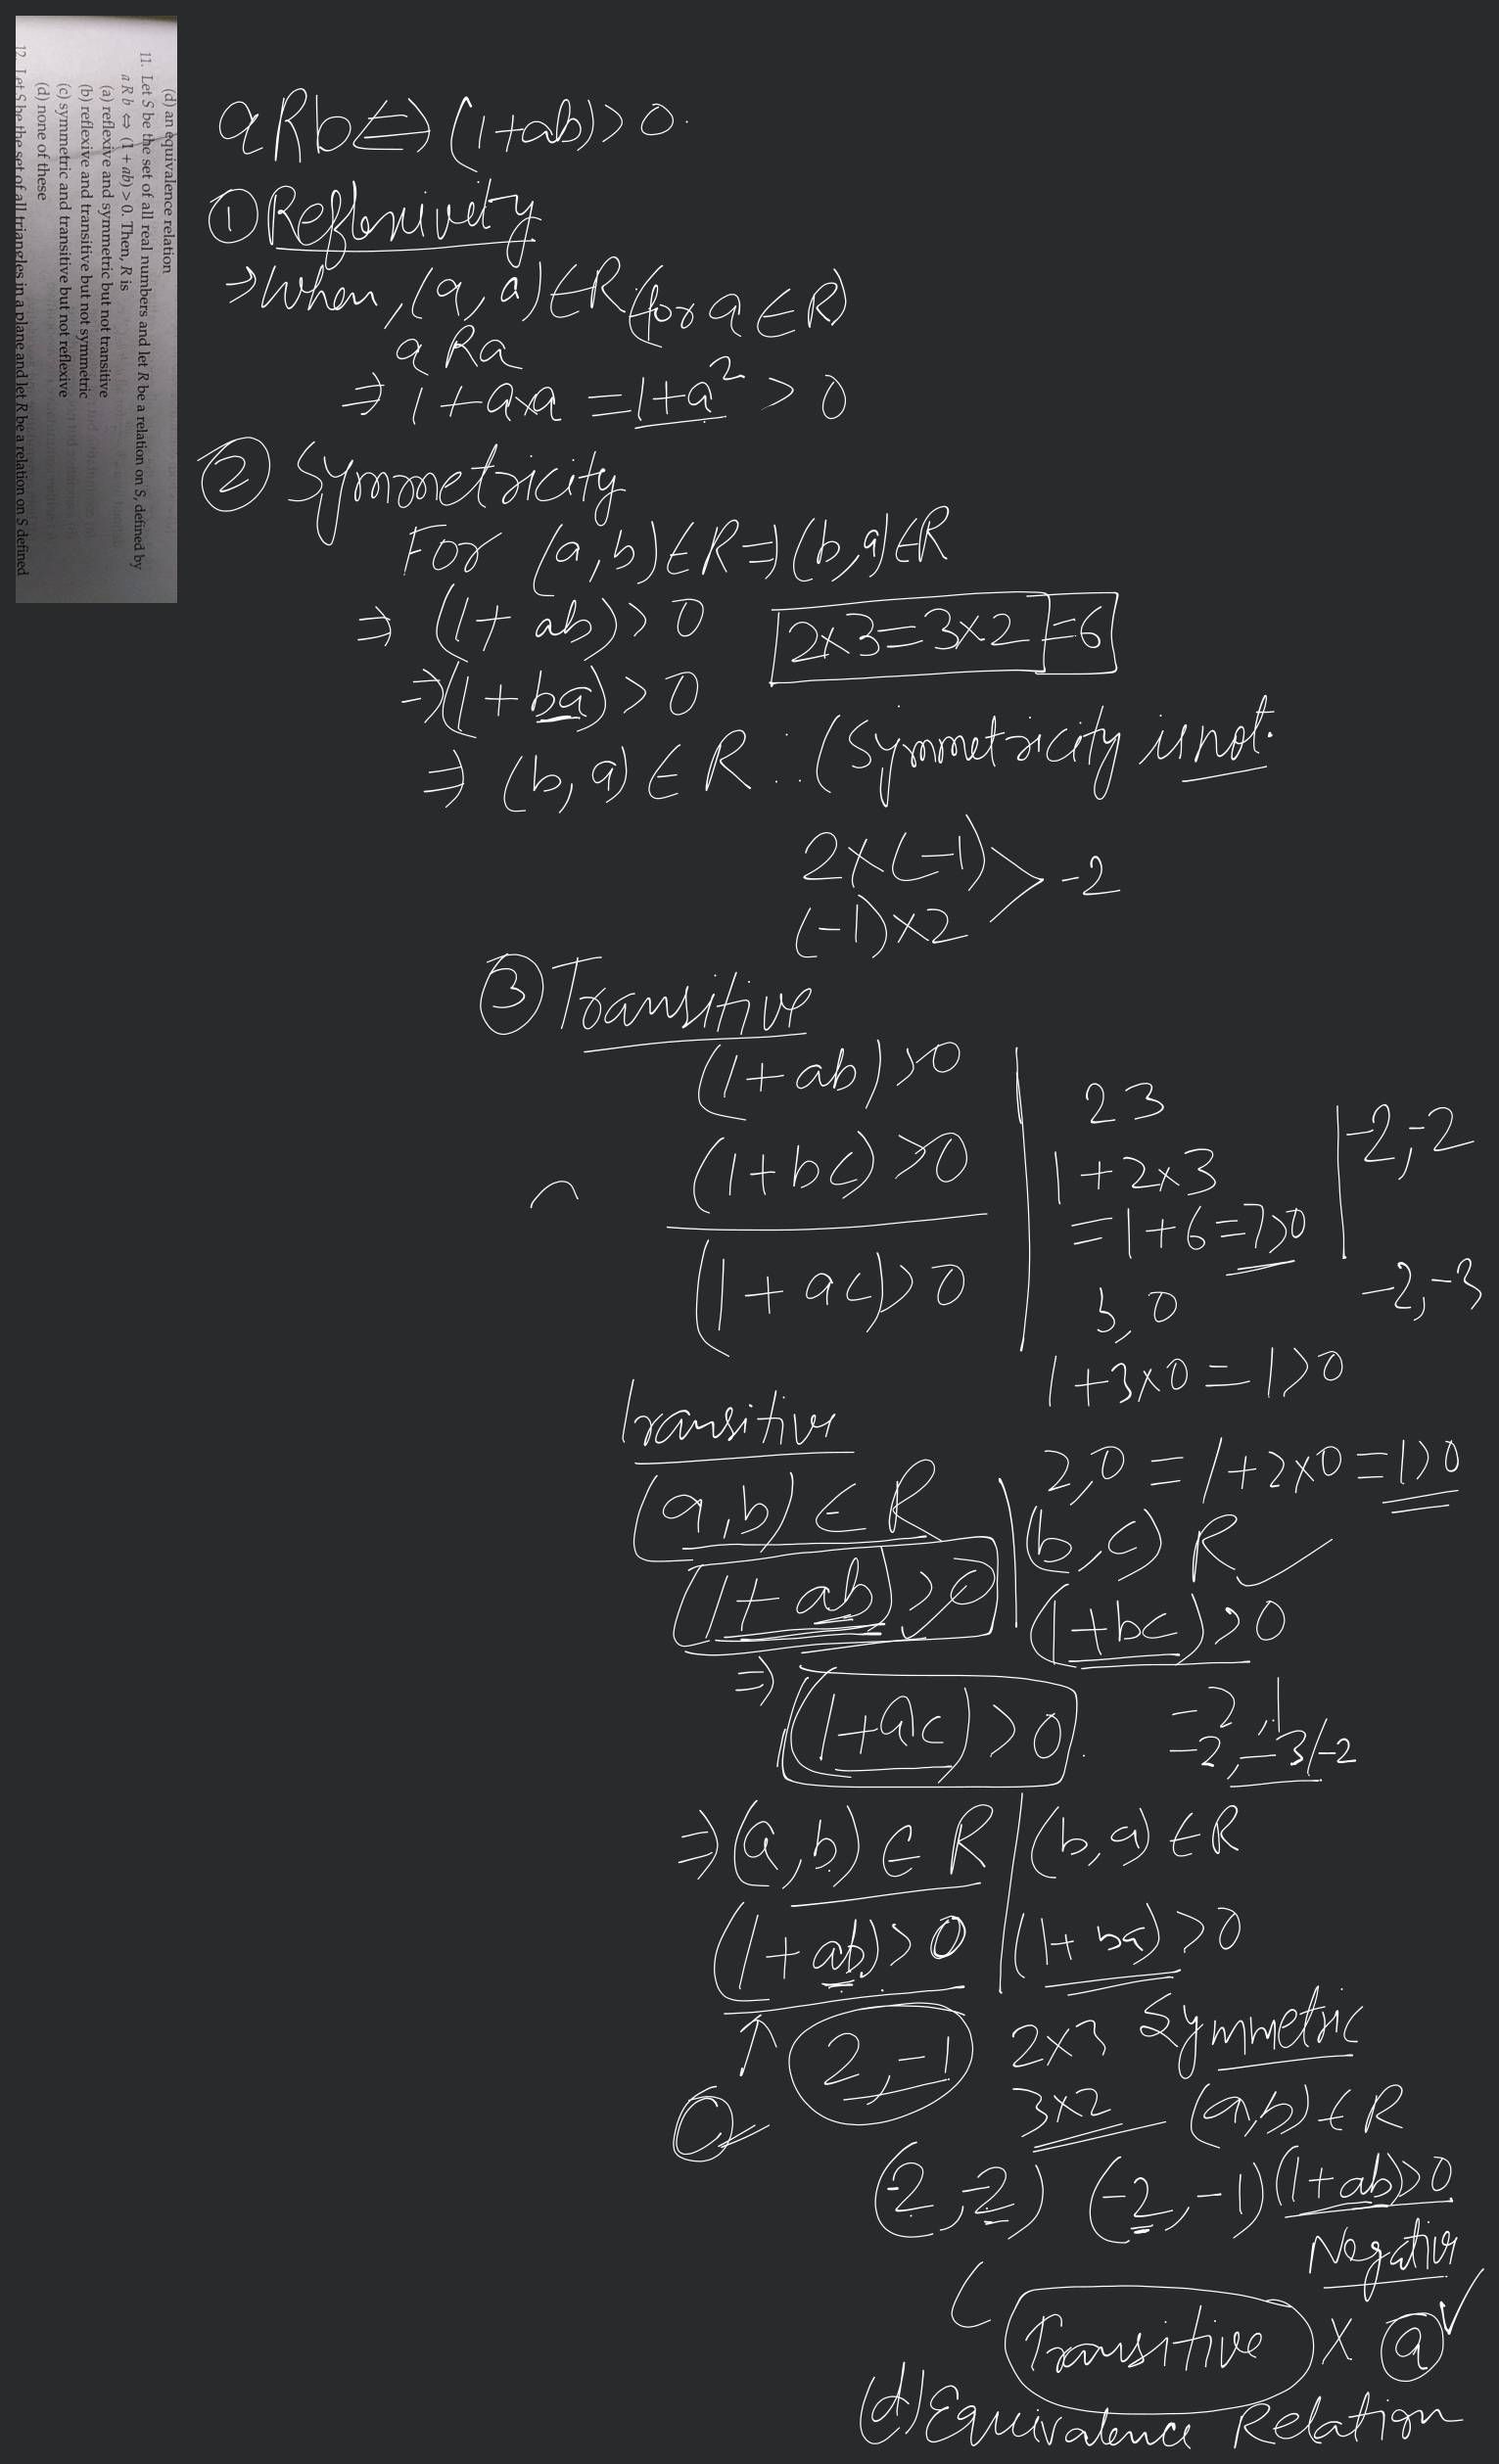 (d) an equivalence relation
11. Let S be the set of all real numbers and let R be a relation on S, defined by
a R b ⇔ (1 + ab) > 0. Then, R is
(a) reflexive and symmetric but not transitive
(b) reflexive and transitive but not symmetric
(c) symmetric and transitive but not reflexive
(d) none of these
12. Let S be the set of all triangles in a plane and let R be a relation on S defined
aRb⇔(1+ab)>0.
① Reflexivity
⇒When, (a, a)∈R (for a ∈ R)
aRa
⇒ 1+a×a = 1+a² > 0
② Symmetricity
For (a,b)∈R⇒(b,a)∈R
⇒ (1+ ab)>0
2×3=3×2=6
⇒(1+ba)>0
⇒ (b,a) ∈ R ∴ (Symmetricity is not.
2×(-1)
> -2
(-1)×2
③ Transitive
(1+ab)>0
(1+bc)>0
(1+ac)>0
2 3
1+2×3
=1+6=7>0
3,0
1+3×0=1>0
2,0=1+2×0=1>0
-2,-2
-2,-3
transitive
(a,b) ∈ R
(b,c) R ✓
(1+ab)>0
(1+bc)>0
⇒ (1+ac)>0.
-2,1
-2,-3/-2
⇒(a,b) ∈ R
(b,a) ∈R
(1+ab)>0
(1+ba)>0
↑ 2,-1
2×3 Symmetric
3×2 (a,b)∈R
(-2,-2) (-2,-1) (1+ab)>0
Negative
Transitive × ⓐ ✓
(d) Equivalence Relation